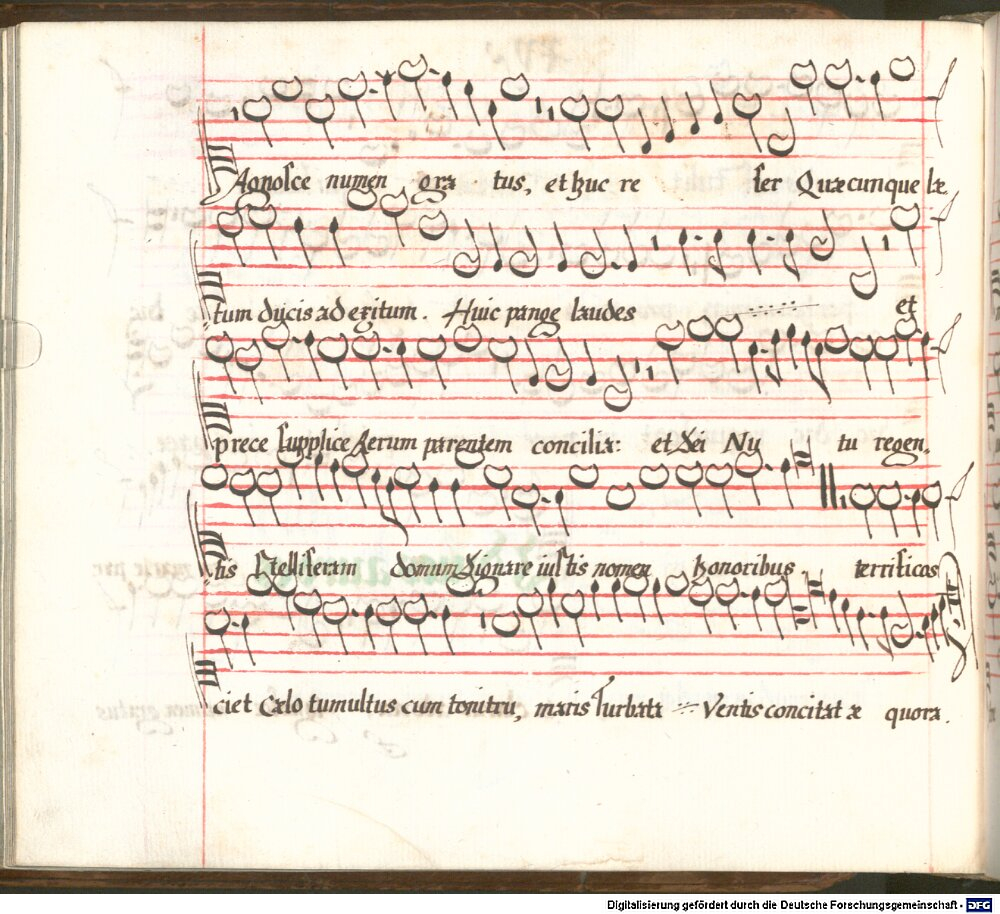 Agnosce numen ora tus, et huc re fer Quæcunque læ
tum ducis ad exitum. Huic pange laudes et
prece supplice Rerum parentem concilia: et Dei Nu tu regen.
tis stelliferam domum Signare iustis nomen honoribus. terrificas
ciet Cælo tumultus cum tonitru, maris Turbata Ventis concitat æ quora.
Digitalisierung gefördert durch die Deutsche Forschungsgemeinschaft - DFG